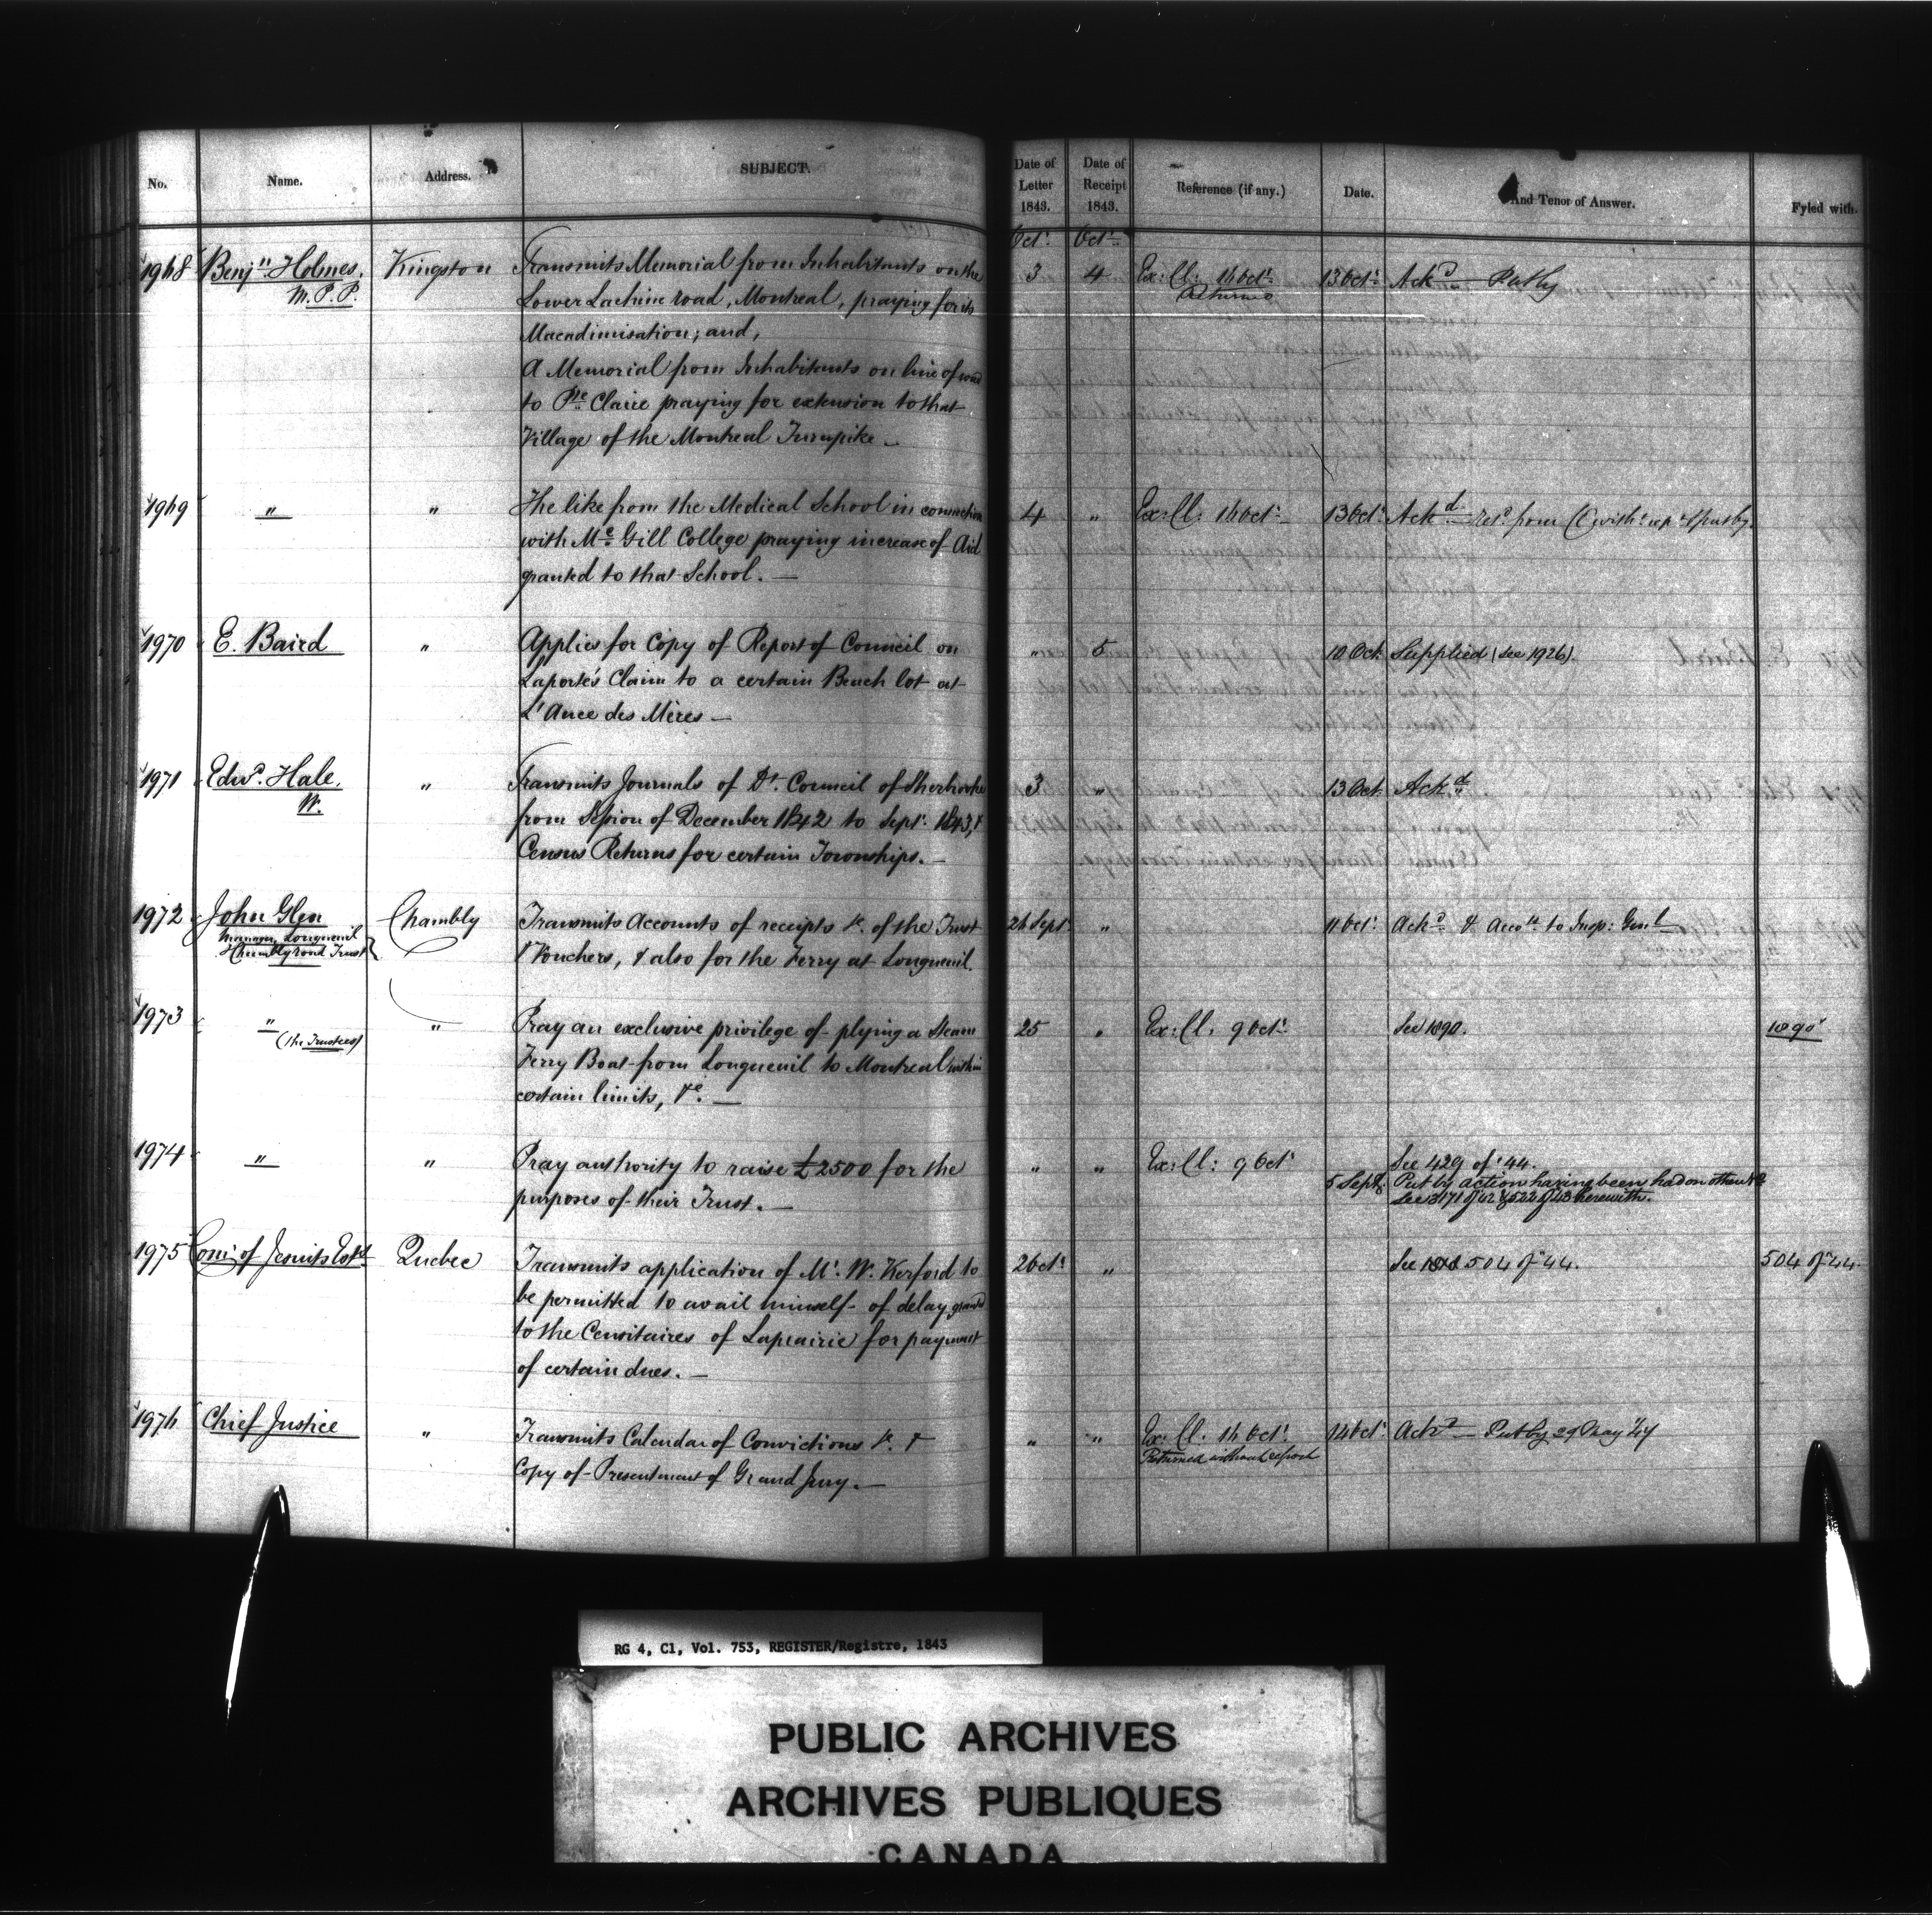 No. Name. Address. SUBJECT. Date of Letter 1843. Date of Receipt 1843. Reference (if any.) Date. And Tenor of Answer. Fyled with.
Octr. Octr.
1968 Benjn. Holmes. Kingston Transmits Memorial from Inhabitants on the 3 4 Ex: Cl: 16 Octr. 13 Octr. Ackd. Put by
M.P.P. Lower Lachine road, Montreal, praying for its Returned
Macadimisation; and,
A Memorial from Inhabitants on line of road
to Pte. Claire praying for extension to that
Village of the Montreal Turnpike —
1969 " " The like from the Medical School in connection 4 " Ex: Cl: 16 Octr. 13 Octr. Ackd. Retd. from CC witht. rept. & put by.
with Mc.Gill College praying increase of Aid
granted to that School. —
1970 E. Baird " Applies for Copy of Report of Council on " 5 10 Oct. Supplied (see 1926).
Laporte's Claim to a certain Beach lot at
L'Ance des Mères —
1971 Edwd. Hale. " Transmits Journals of Dt. Council of Sherbrooke 3 " 13 Oct. Ackd.
from Session of December 1842 to Sept. 1843, &
Census Returns for certain Townships. —
1972 John Glen Chambly Transmits Accounts of receipts &c. of the Trust 26 Sept. " 11 Octr. Ackd. & Accots. to Insp: Genl.
Manager Longueuil
& Chambly road Trust & Vouchers, & also for the Ferry at Longueuil.
1973 " " Pray an exclusive privilege of plying a Steam 25 " Ex: Cl: 9 Octr. See 1890. 1890
(the Trustees) Ferry Boat from Longueuil to Montreal within
certain limits, &c. —
1974 " " Pray authority to raise £2500 for the " " Ex: Cl: 9 Octr. See 429 of '44.
purposes of their Trust. — 5 Sept. Put by action having been had on other
See 3171 of 42 & 522 of 43 herewith.
1975 Comr. of Jesuits Estt. Quebec Transmits application of Mr. W. Kerford to 2 Octr. " See 504 of '44. 504 of '44.
be permitted to avail himself of delay granted
to the Censitaires of Laprairie for payment
of certain dues. —
1976 Chief Justice " Transmits Calendar of Convictions &c. & " " Ex: Cl: 16 Octr. 14 Octr. Ackd. — Put by 29 May '44
Copy of Presentment of Grand Jury. — Returned without report
RG 4, C1, Vol. 753, REGISTER/Registre, 1843
PUBLIC ARCHIVES
ARCHIVES PUBLIQUES
CANADA